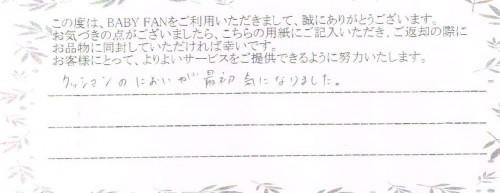 この度は、BABY FANをご利用いただきまして、誠にありがとうございます。
お気づきの点がございましたら、こちらの用紙にご記入いただき、ご返却の際に
お品物に同封していただければ幸いです。
お客様にとって、よりよいサービスをご提供できるように努力いたします。
クッションのにおいが最初気になりました。